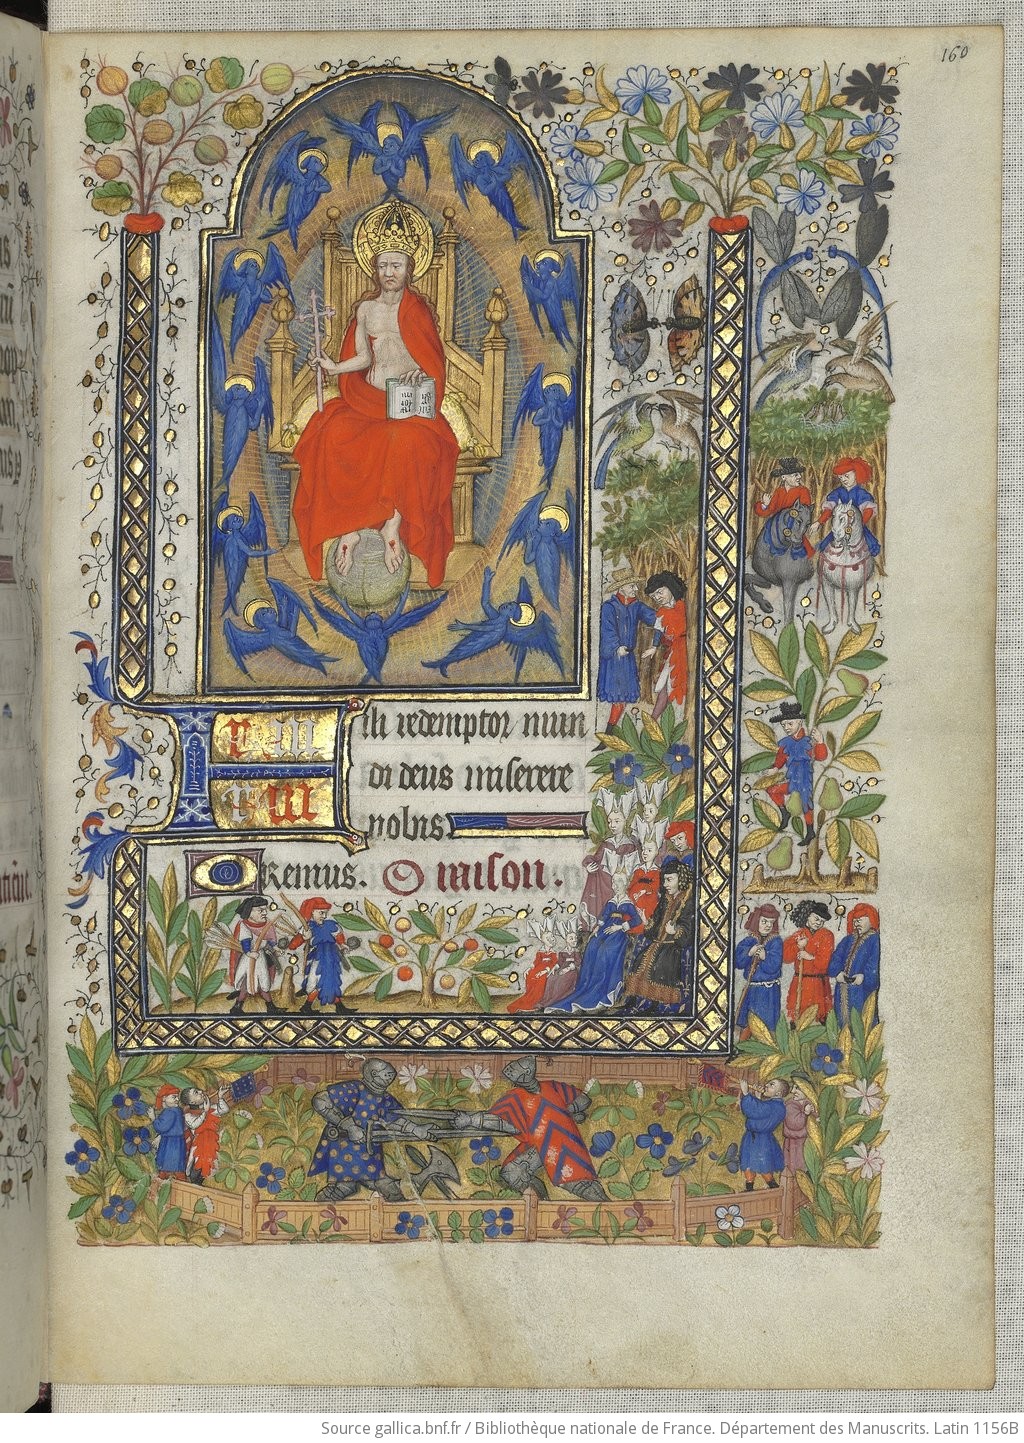 160
ili redemptor mun
di deus miserere
nobis.
Oremus. Oraison.
Source gallica.bnf.fr / Bibliothèque nationale de France. Département des Manuscrits. Latin 1156B